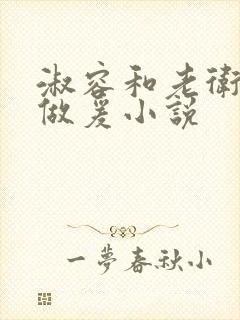 淑容和老衛
做爰小説
一夢春秋小